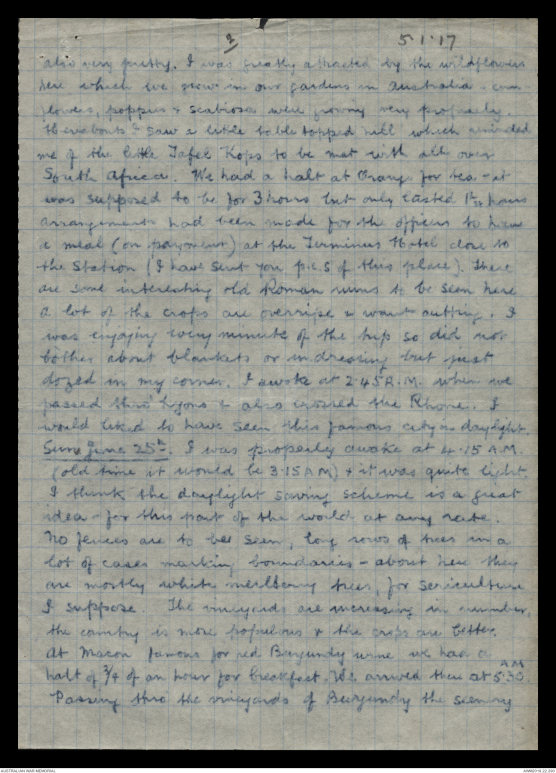 2
5.1.17
also very pretty. I was greatly attracted by the wildflowers
here which we grow in our gardens in Australia - corn
flowers, poppies & scabiosa were growing very profusely.
Hereabouts I saw a little table topped hill which reminded
me of the little Tafel Kops to be met with all over
South Africa. We had a halt at Orange for tea - it
was supposed to be for 3 hours but only lasted 1½ hours
arrangements had been made for the officers to have
a meal (on payment) at the Terminus Hotel close to
the Station (I have sent you p.c.s of this place). There
are some interesting old Roman ruins to be seen here
a lot of the crops are overripe & want cutting. I
was enjoying every minute of the trip so did not
bother about blankets or undressing but just
dozed in my corner. I awoke at 2.45 A.M. when we
passed thro' Lyons & also crossed the Rhone. I
would liked to have seen this famous city in daylight.
Sun. June 25th. I was properly awake at 4.15 A.M
(old time it would be 3.15 AM) & it was quite light.
I think the daylight saving scheme is a great
idea - for this part of the world at any rate.
No fences are to be seen, long rows of trees in a
lot of cases marking boundaries - about here they
are mostly white mulberry trees, for sericulture
I suppose. The vineyards are increasing in number,
the country is more populous & the crops are better.
At Macon famous for red Burgundy wine we had a
halt of ¾ of an hour for breakfast. We arrived there at 5.30 AM
Passing thro the vineyards of Burgundy the scenery
AUSTRALIAN WAR MEMORIAL